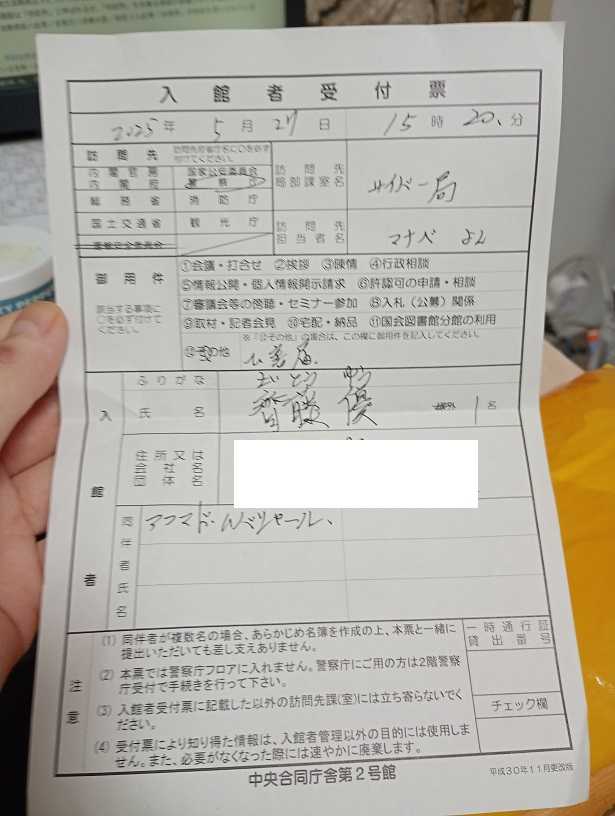 入館者受付票
2025年 5月 27日 15時 20分
訪問先 訪問先省庁名に○を必ず付けてください。
内閣官房 国家公安委員会
内閣府 警察庁
総務省 消防庁
国土交通省 観光庁
運輸安全委員会
訪問先局部課室名 サイバー局
訪問先担当者名 マナベ
御用件
該当する事項に○を必ず付けてください。
①会議・打合せ ②挨拶 ③陳情 ④行政相談
⑤情報公開・個人情報開示請求 ⑥許認可の申請・相談
⑦審議会等の傍聴・セミナー参加 ⑧入札(公募)関係
⑨取材・記者会見 ⑩宅配・納品 ⑪国会図書館分館の利用
※「⑫その他」の場合は、この欄に御用件を記入してください。
⑫その他
入館者
ふりがな さいとう ゆう
氏名 齊藤 優 1名
住所又は
会社名
団体名
同伴者氏名
アフマド・
注意
(1) 同伴者が複数名の場合、あらかじめ名簿を作成の上、本票と一緒に
提出いただいても差し支えありません。
(2) 本票では警察庁フロアに入れません。警察庁にご用の方は2階警察
庁受付で手続きを行って下さい。
(3) 入館者受付票に記載した以外の訪問先課(室)には立ち寄らないでく
ださい。
(4) 受付票により知り得た情報は、入館者管理以外の目的には使用しま
せん。また、必要がなくなった際には速やかに廃棄します。
一時通行証
貸出番号
チェック欄
中央合同庁舎第2号館
平成30年11月更改版